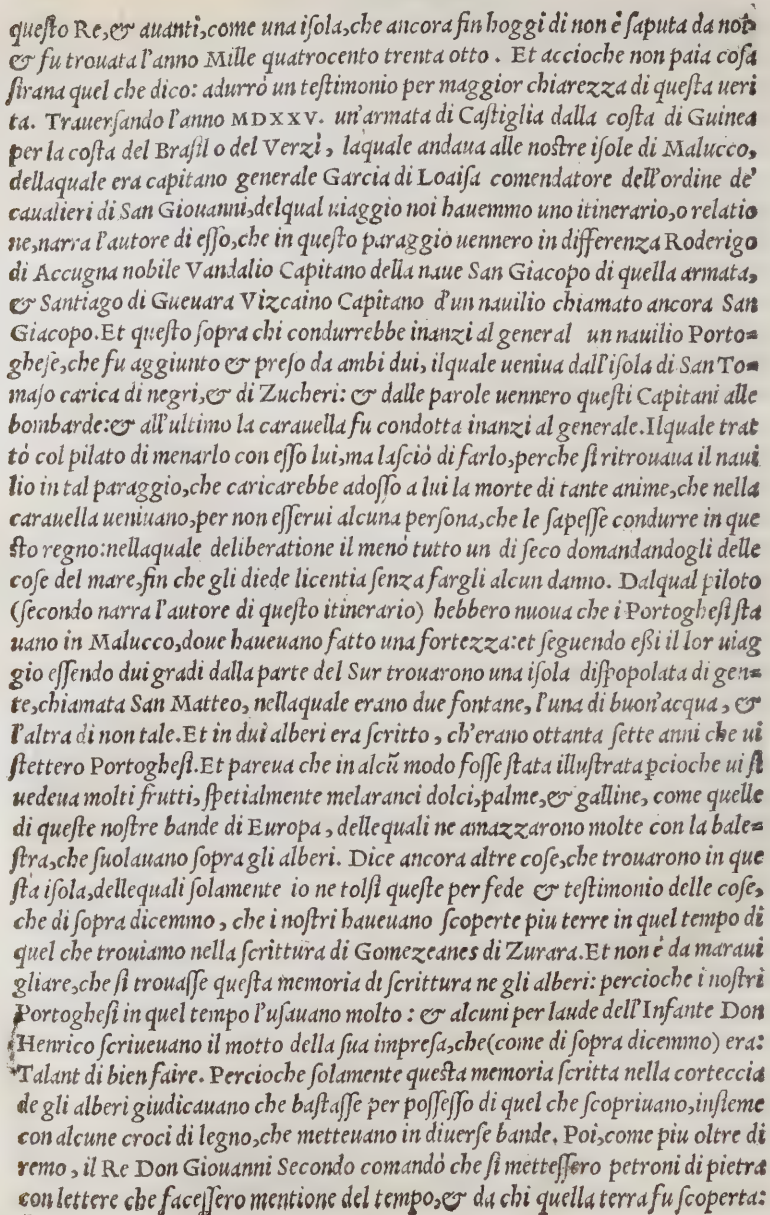 queſto Re,& auanti,come una iſola,che ancora fin hoggi di non è ſaputa da noi:
& fu trouata l'anno Mille quatrocento trenta otto . Et accioche non paia coſa
ſtrana quel che dico: adurrò un teſtimonio per maggior chiarezza di queſta ueri
ta. Trauerſando l'anno MDXXV. un'armata di Caſtiglia dalla coſta di Guinea
per la coſta del Braſil o del Verzì , laquale andaua alle noſtre iſole di Malucco,
dellaquale era capitano generale Garcia di Loaiſa comendatore dell'ordine de'
caualieri di San Giouanni,delqual uiaggio noi hauemmo uno itinerario,o relatio
ne,narra l'autore di eſſo,che in queſto paraggio uennero in differenza Roderigo
di Accugna nobile Vandalio Capitano della naue San Giacopo di quella armata,
& Santiago di Gueuara Vizcaino Capitano d'un nauilio chiamato ancora San
Giacopo.Et queſto ſopra chi condurrebbe inanzi al general un nauilio Porto=
gheſe,che fu aggiunto & preſo da ambi dui, ilquale ueniua dall'iſola di San To=
maſo carica di negri,& di Zucheri: & dalle parole uennero queſti Capitani alle
bombarde:& all'ultimo la carauella fu condotta inanzi al generale.Ilquale trat
tò col pilato di menarlo con eſſo lui,ma laſciò di farlo,perche ſi ritrouaua il naui
lio in tal paraggio,che caricarebbe adoſſo a lui la morte di tante anime,che nella
carauella ueniuano,per non eſſerui alcuna perſona,che le ſapeſſe condurre in que
ſto regno:nellaquale deliberatione il menò tutto un di ſeco domandandogli delle
coſe del mare,fin che gli diede licentia ſenza fargli alcun danno. Dalqual piloto
(ſecondo narra l'autore di queſto itinerario) hebbero nuoua che i Portogheſi ſta
uano in Malucco,doue haueuano fatto una fortezza:et ſeguendo eſsi il lor uiag
gio eſſendo dui gradi dalla parte del Sur trouarono una iſola diſpopolata di gen=
te,chiamata San Matteo, nellaquale erano due fontane, l'una di buon'acqua , &
l'altra di non tale.Et in dui alberi era ſcritto , ch'erano ottanta ſette anni che ui
ſtettero Portogheſi.Et pareua che in alcũ modo foſſe ſtata illuſtrata ꝑcioche ui ſi
uedeua molti frutti, ſpetialmente melaranci dolci,palme,& galline, come quelle
di queſte noſtre bande di Europa , dellequali ne amazzarono molte con la bale=
ſtra,che ſuolauano ſopra gli alberi. Dice ancora altre coſe,che trouarono in que
ſta iſola,dellequali ſolamente io ne tolſi queſte per fede & teſtimonio delle coſe,
che di ſopra dicemmo , che i noſtri haueuano ſcoperte piu terre in quel tempo di
quel che trouiamo nella ſcrittura di Gomezeanes di Zurara.Et non è da maraui
gliare,che ſi trouaſſe queſta memoria di ſcrittura ne gli alberi: percioche i noſtri
Portogheſi in quel tempo l'uſauano molto : & alcuni per laude dell'Infante Don
Henrico ſcriueuano il motto della ſua impreſa,che(come di ſopra dicemmo) era:
Talant di bien faire. Percioche ſolamente queſta memoria ſcritta nella corteccia
de gli alberi giudicauano che baſtaſſe per poſſeſſo di quel che ſcopriuano,inſieme
con alcune croci di legno,che metteuano in diuerſe bande. Poi,come piu oltre di
remo , il Re Don Giouanni Secondo comandò che ſi metteſſero petroni di pietra
con lettere che faceſſero mentione del tempo,& da chi quella terra fu ſcoperta: